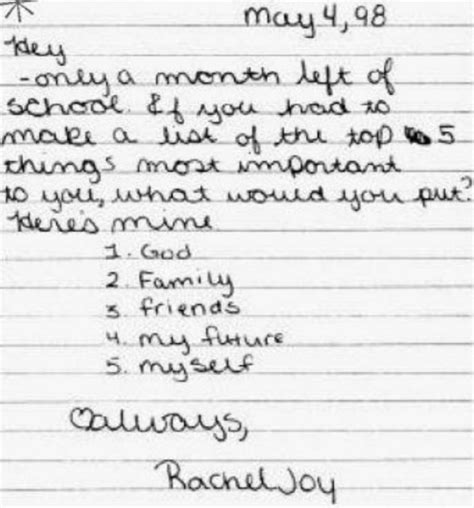 May 4, 98
Hey
-only a month left of
school. If you had to
make a list of the top 5
things most important
to you, what would you put?
Here's mine
1. God
2. Family
3. friends
4. my future
5. myself
♡always,
Rachel Joy